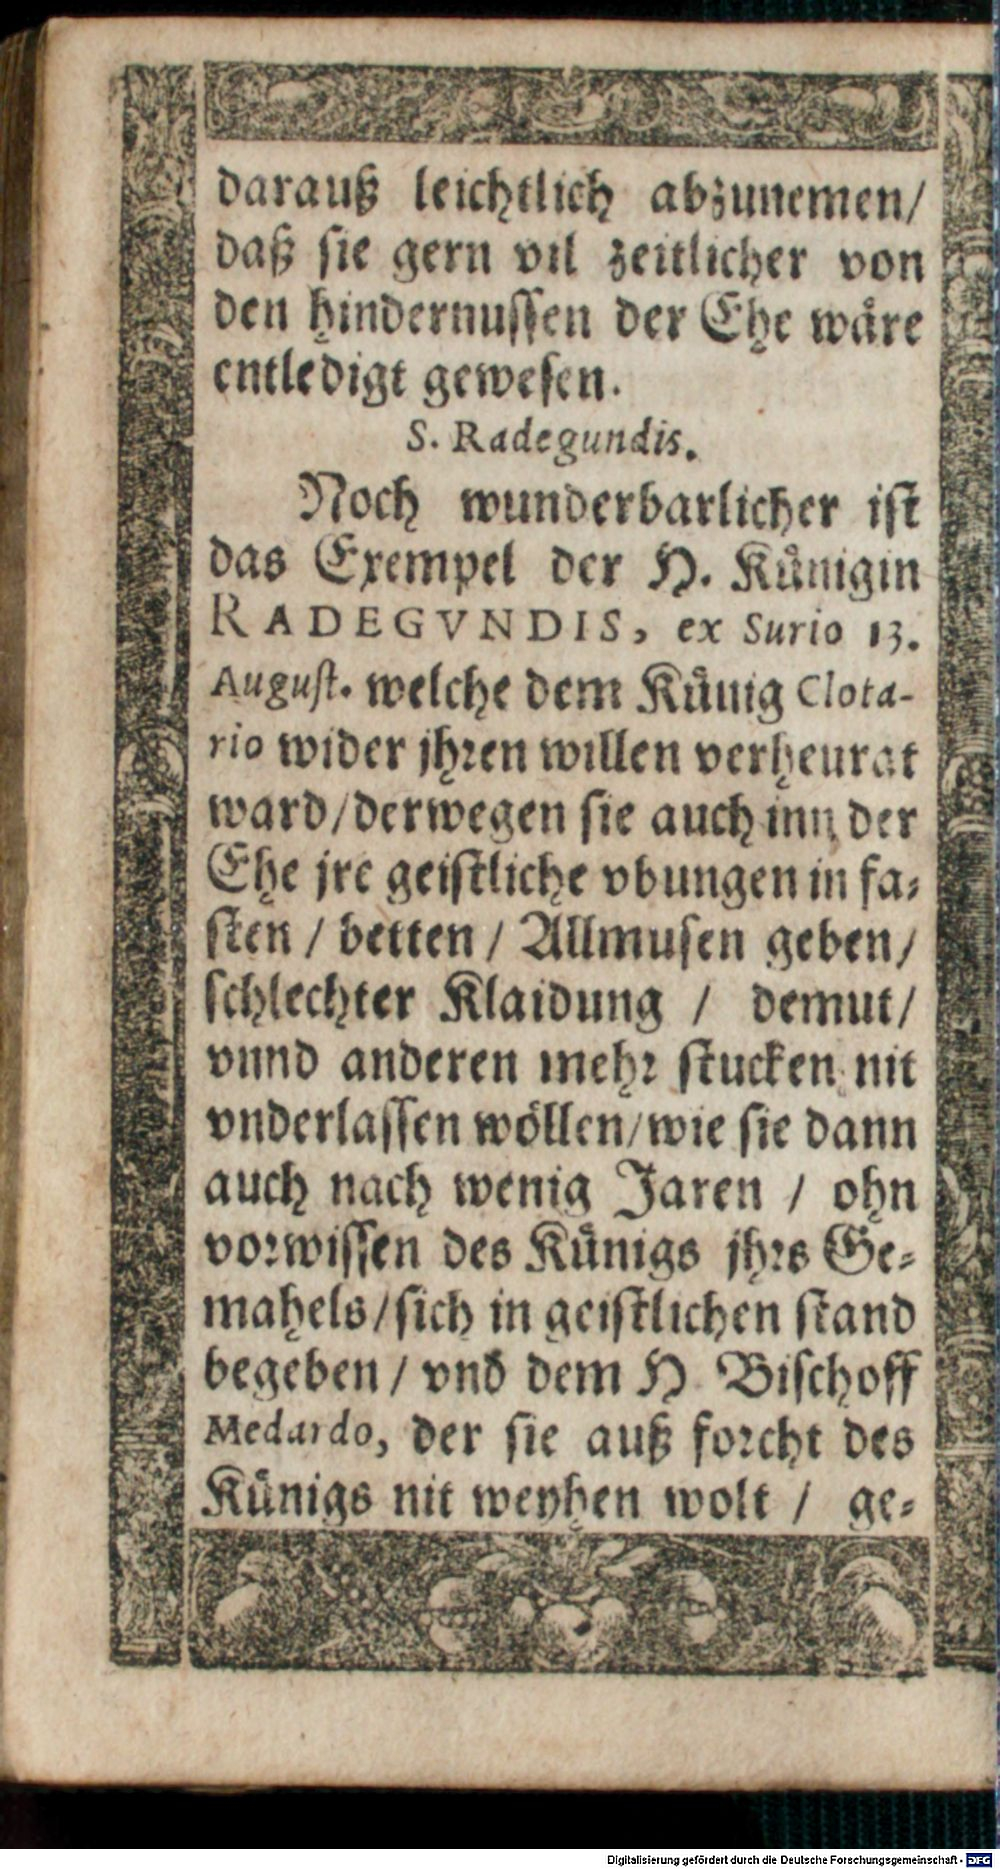 darauß leichtlich abzunemen/
daß sie gern vil zeitlicher von
den hindernussen der Ehe wåre
entledigt gewesen.
S. Radegundis.
Noch wunderbarlicher ist
das Exempel der H. Kůnigin
RADEGVNDIS, ex Surio 13.
August. welche dem Kůnig Clota-
rio wider jhren willen verheurat
ward/derwegen sie auch inn der
Ehe jre geistliche vbungen in fa-
sten / betten / Allmusen geben/
schlechter Klaidung / demut/
vnnd anderen mehr stucken nit
vnderlassen wöllen/wie sie dann
auch nach wenig Jaren / ohn
vorwissen des Kůnigs jhrs Ge-
mahels/sich in geistlichen stand
begeben / vnd dem H Bischoff
Medardo, der sie auß forcht des
Kůnigs nit weyhen wolt / ge-
Digitalisierung gefördert durch die Deutsche Forschungsgemeinschaft - DFG